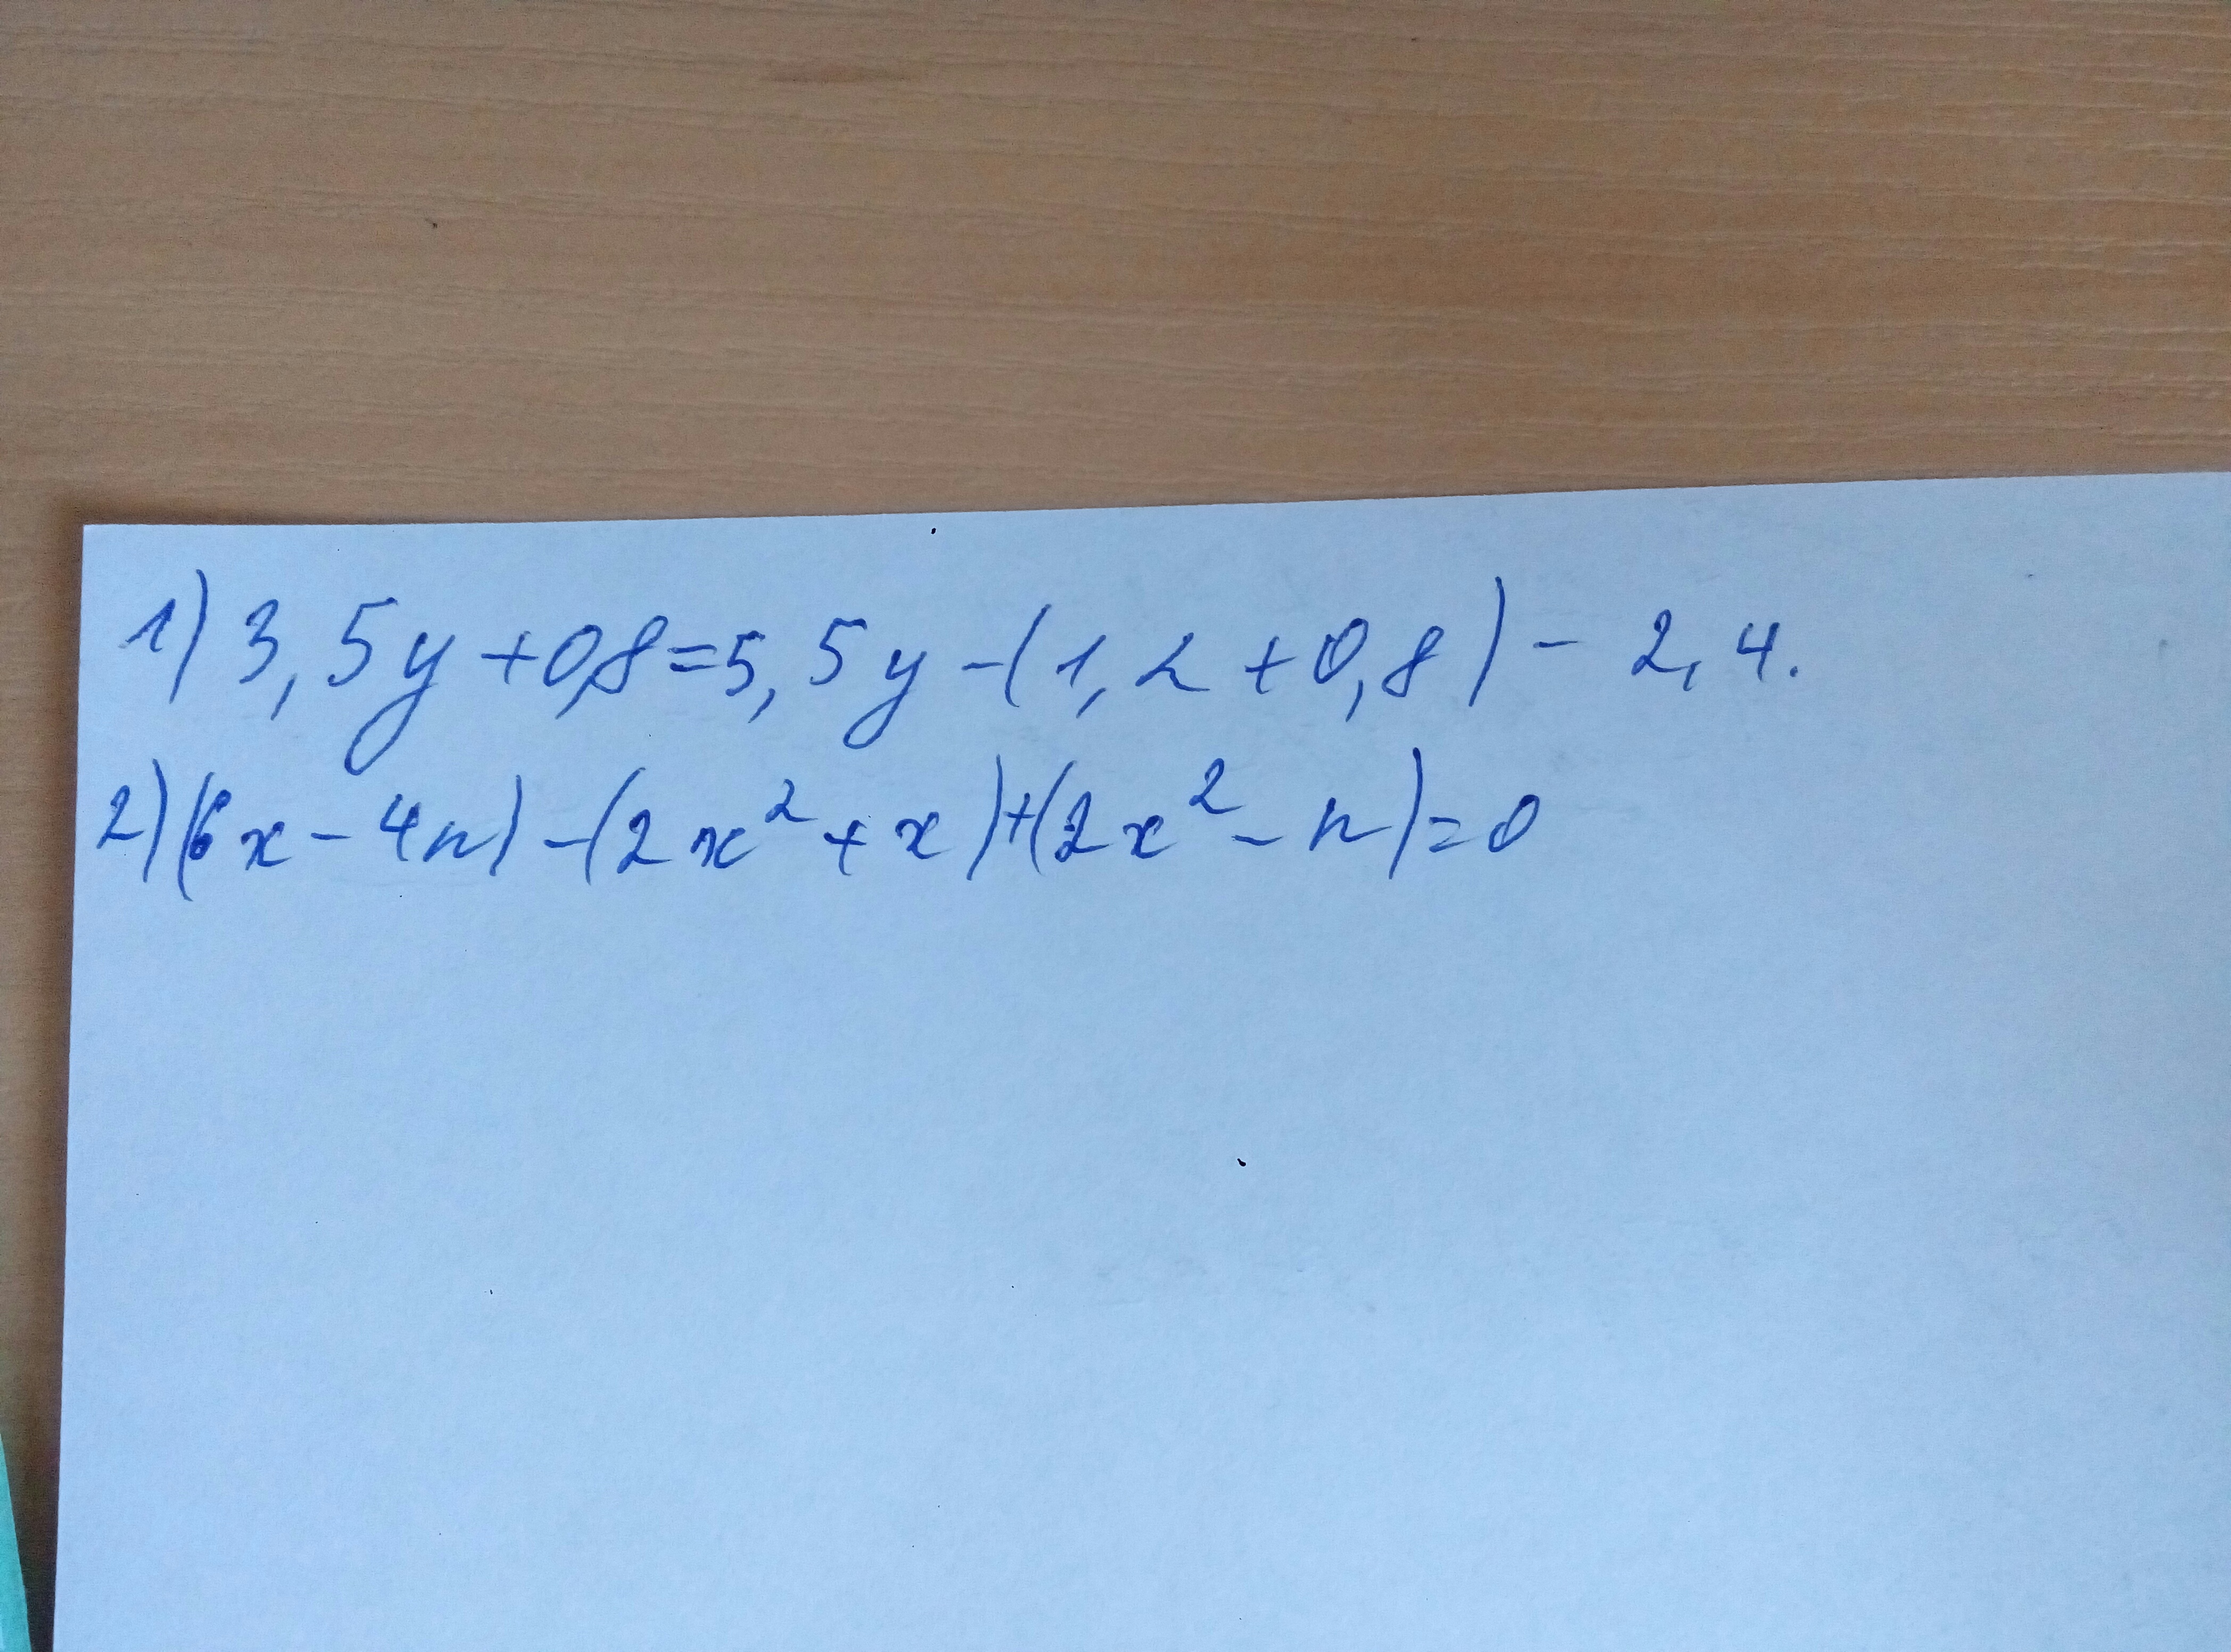 1) 3,5y+0,8=5,5y-(1,2+0,8)-2,4.
2) (6x-4n)-(2x²+x)+(2x²-n)=0